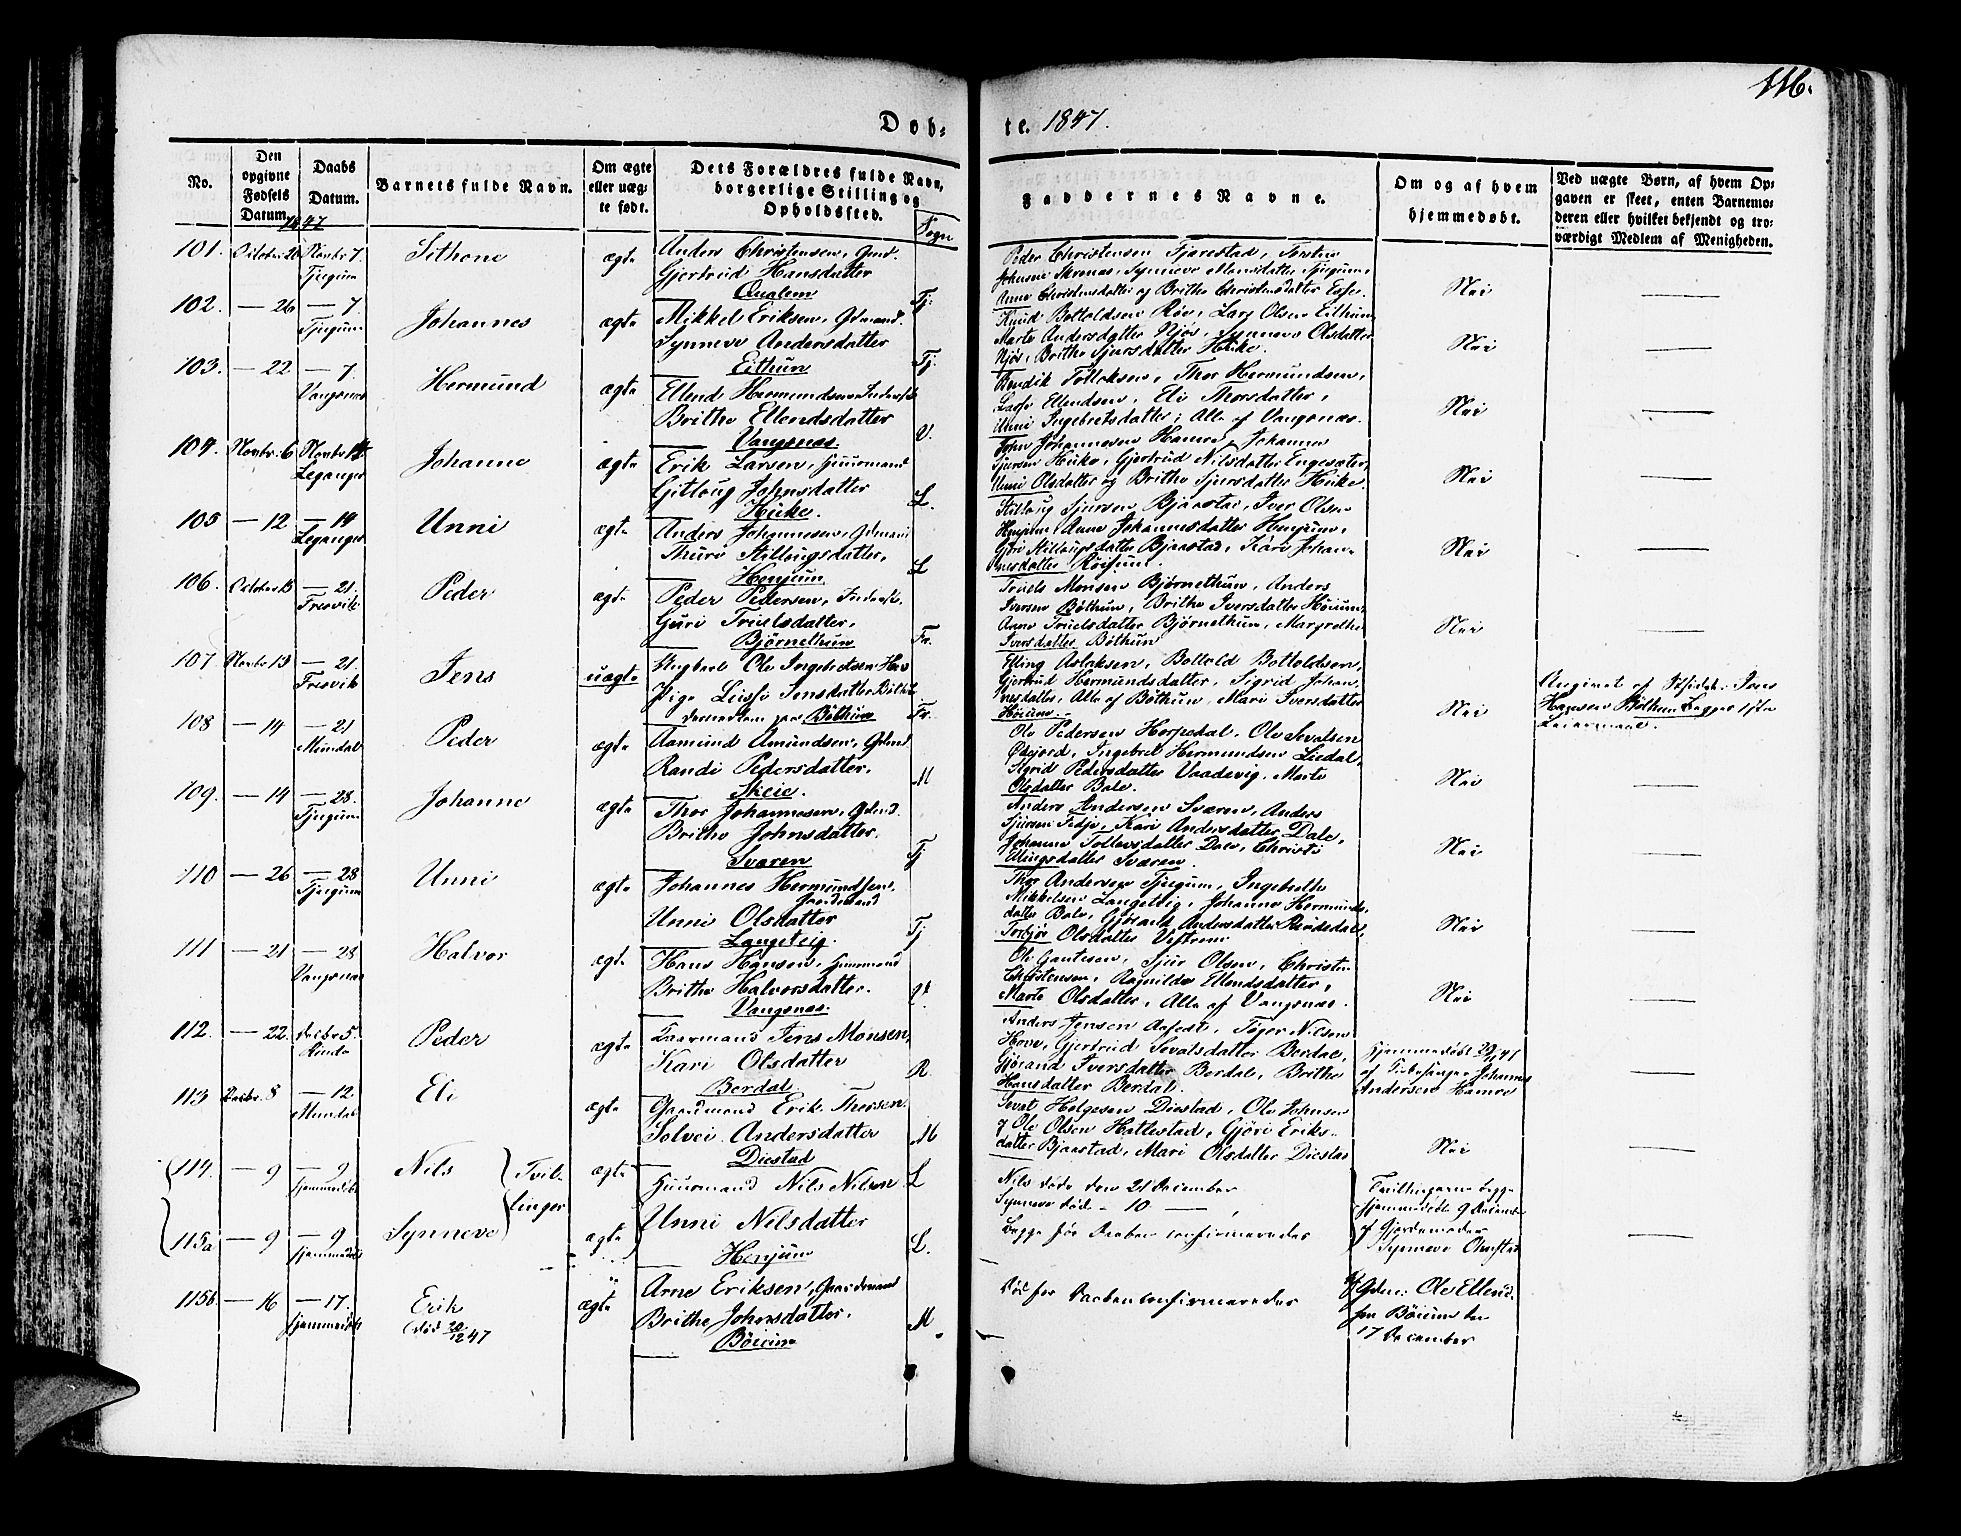 116.
Døb-
te. 1847.
No.
Den opgivne Fødsels Datum.
Daabs Datum.
1847
Barnets fulde Navn.
Om ægte eller uægte født.
Dets Forældres fulde Navn, borgerlige Stilling og Opholdsted.
Sogn
Faddernes Navne.
Om og af hvem hjemmedøbt.
Ved uægte Børn, af hvem Opgaven er skeet, enten Barnemoderen eller hvilket bekjendt og troværdigt Medlem af Menigheden.
101. October 20 Novbr 7. Tjugum
ægte
Anders Christensen, Gmd.
Gjertrud Hansdatter
Qualem
Tj:
Peder Christensen Fjærestad,
Anne Christensdatter og Brithe Christensdatter Esse.
Nei
102. — 26 — 7. Tjugum
Johannes
ægte
Mikkel Eriksen, Gdmand.
Synneve Andersdatter
Eithun
Tj.
Knud Bottolfsen Røv, Lars Olsen Eithun
Marte Andersdatter Njøs, Synneve Olsdatter
Njøs, Brithe Sjursdatter Huke.
Nei
103. — 22 — 7. Vangsnæs
Hermund
ægte
Ellend Hermundsen
Brithe Ellendsdatter
Vangsnæs.
V.
Bendik Tollaksen, Thor Hermundsen,
Lasse Ellendsen, Eli Thorsdatter,
Unni Ingebretsdatter, Alle af Vangsnæs.
Nei
104. Novbr. 6 Novbr 14 Leganger
Johanne
ægte
Erik Larsen, Huusmand
Gitlaug Johnsdatter
Huke.
L.
John Johannesen Hamre, Johannes
Sjursen Huke, Gjertrud Nilsdatter Engesæter,
Unni Olsdatter og Brithe Sjursdatter Huke.
Nei
105 — 12 — 14 Leganger
Unni
ægte
Anders Johannesen, Gdmand
Thuri Stillaugsdatter,
Henjum
L
Stillaug Sjursen Bjaastad, Iver Olsen
Henjum, Anne Johannesdatter Henjum,
Gjøri Stillaugsdatter Bjaastad, Kari Johan-
nesdatter Røisum.
Nei
106. October 15 — 21. Fresvik
Peder
ægte
Peder Pedersen,
Guri Truelsdatter,
Bjørnethun
Fr.
Truels Monsen Bjørnethun, Anders
Iversen Bøthun, Brithe Iversdatter Høium,
Anne Truelsdatter Bjørnethun, Margrethe
Iversdatter Bøthun
Nei
107. Novbr 13 — 21. Fresvik
Jens
uægte
Ungkarl Ole Ingebretsen
Pige Lisse Jensdatter Bøthun
Bøthun
Fr.
Elling Aslaksen, Bottolf Bottolfsen,
Gjertrud Hermundsdatter, Sigrid Johan-
nesdatter, Alle af Bøthun, Mari Iversdatter
Høium.
Nei
Angivet af
Hansen Bøthun Begges 1ste
Leiermaal.
108 — 14 — 21 Mundal
Peder
ægte
Aamund Amundsen, Gdmd
Randi Pedersdatter.
Skeie.
M
Ole Pedersen Horpedal, Ole Sevatsen
Øygjord, Ingebret Hermundsen Liedal,
Sigrid Pedersdatter Vaadevig, Marte
Olsdatter Bale.
Nei
109. — 14 — 28. Tjugum
Johanne
ægte
Thor Johannesen, Gdmd.
Brithe Johnsdatter.
Sværen
Tj
Anders Andersen Sværen, Anders
Sjursen Fedje, Kari Andersdatter Dale,
Johanne Tollevsdatter Dale, Christi
Ellingsdatter Sværen.
Nei
110 — 26 — 28 Tjugum
Unni
ægte
Johannes Hermundsen,
Gaardmand
Unni Olsdatter
Langeteig.
Tj
Thor Andersen Tjugum, Ingebrethe
Mikkelsen Langeteig, Johanne Hermunds-
datter Bale, Gjørand Andersdatter
Torbjør Olsdatter Vestrem
Nei
111 — 21 — 28 Vangsnæs
Halvor
ægte
Hans Hansen, Huusmand
Brithe Halvorsdatter.
Vangsnæs.
V.
Ole Gautesen, Sjur Olsen, Christen
Christensen, Ragnilde Ellendsdatter,
Marte Olsdatter, Alle af Vangsnæs.
Nei
112. — 22. Decbr 5. Rinde
Peder
ægte
Jens Monsen,
Kari Olsdatter
Berdal.
R
Anders Jensen Aafedt, Tøger Nilsen
Hove, Gjertrud Sevatsdatter Berdal,
Gjørand Iversdatter Berdal, Brithe
Hansdatter Berdal.
Hjemmedøbt
af Kirkesanger Johannes
Andersen Hamre
113 Decbr. 8 — 12. Mundal
Eli
ægte
Gaardmand Erik Thorsen
Solvei Andersdatter
Diestad
M
Sevat Helgesen Diestad, Ole Johnsen
og Ole Olsen Hattestad, Gjøri Eriks-
datter Bjaastad, Mari Olsdatter Diestad
Nei
114. — 9 — 9 hjemmedøbt
Nils
Tvil-
linger
ægte
Huusmand Nils Nilsen
Unni Nilsdatter
Henjum
L
Nils døde den 21 December
Synneve død - 10 —
Begge før Daaben confirmeredes
Tvillingerne begge
hjemmedøbt 9 December
af Gjordemoder
Synneve Ohnstad
115a — 9 — 9 hjemmedøbt
Synneve
ægte
L.
115b — 16 — 17. hjemmedøbt
Erik
(død 20/12 47
ægte
Arne Eriksen, Gaardmand
Brithe Johnsdatter.
Bøium
M.
Død før Daaben confirmeredes
af Gdm: Ole Ellend-
sen Bøium den
17 December